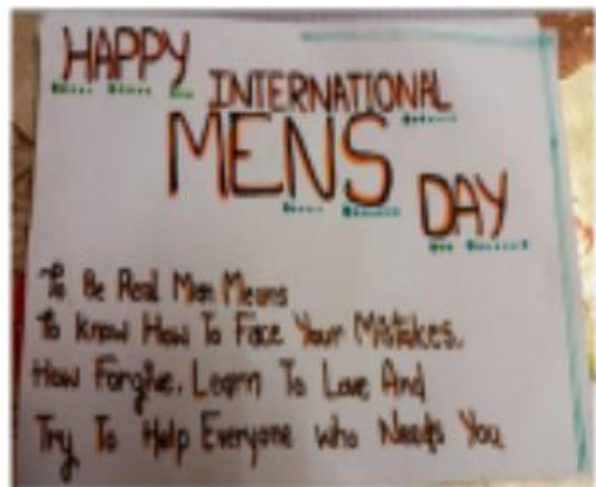 HAPPY
INTERNATIONAL
MENS
DAY
To Be Real Man Means
To Know How To Face Your Mistakes.
How Forgive. Learn To Love And
Try To Help Everyone who Needs You